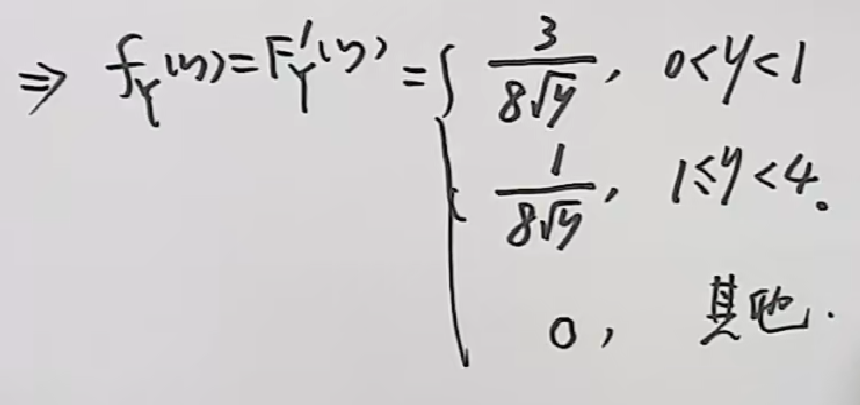 ⇒ f_Y(y) = F'_Y(y) = { 3/(8√y), 0<y<1
1/(8√y), 1≤y<4。
0, 其他.